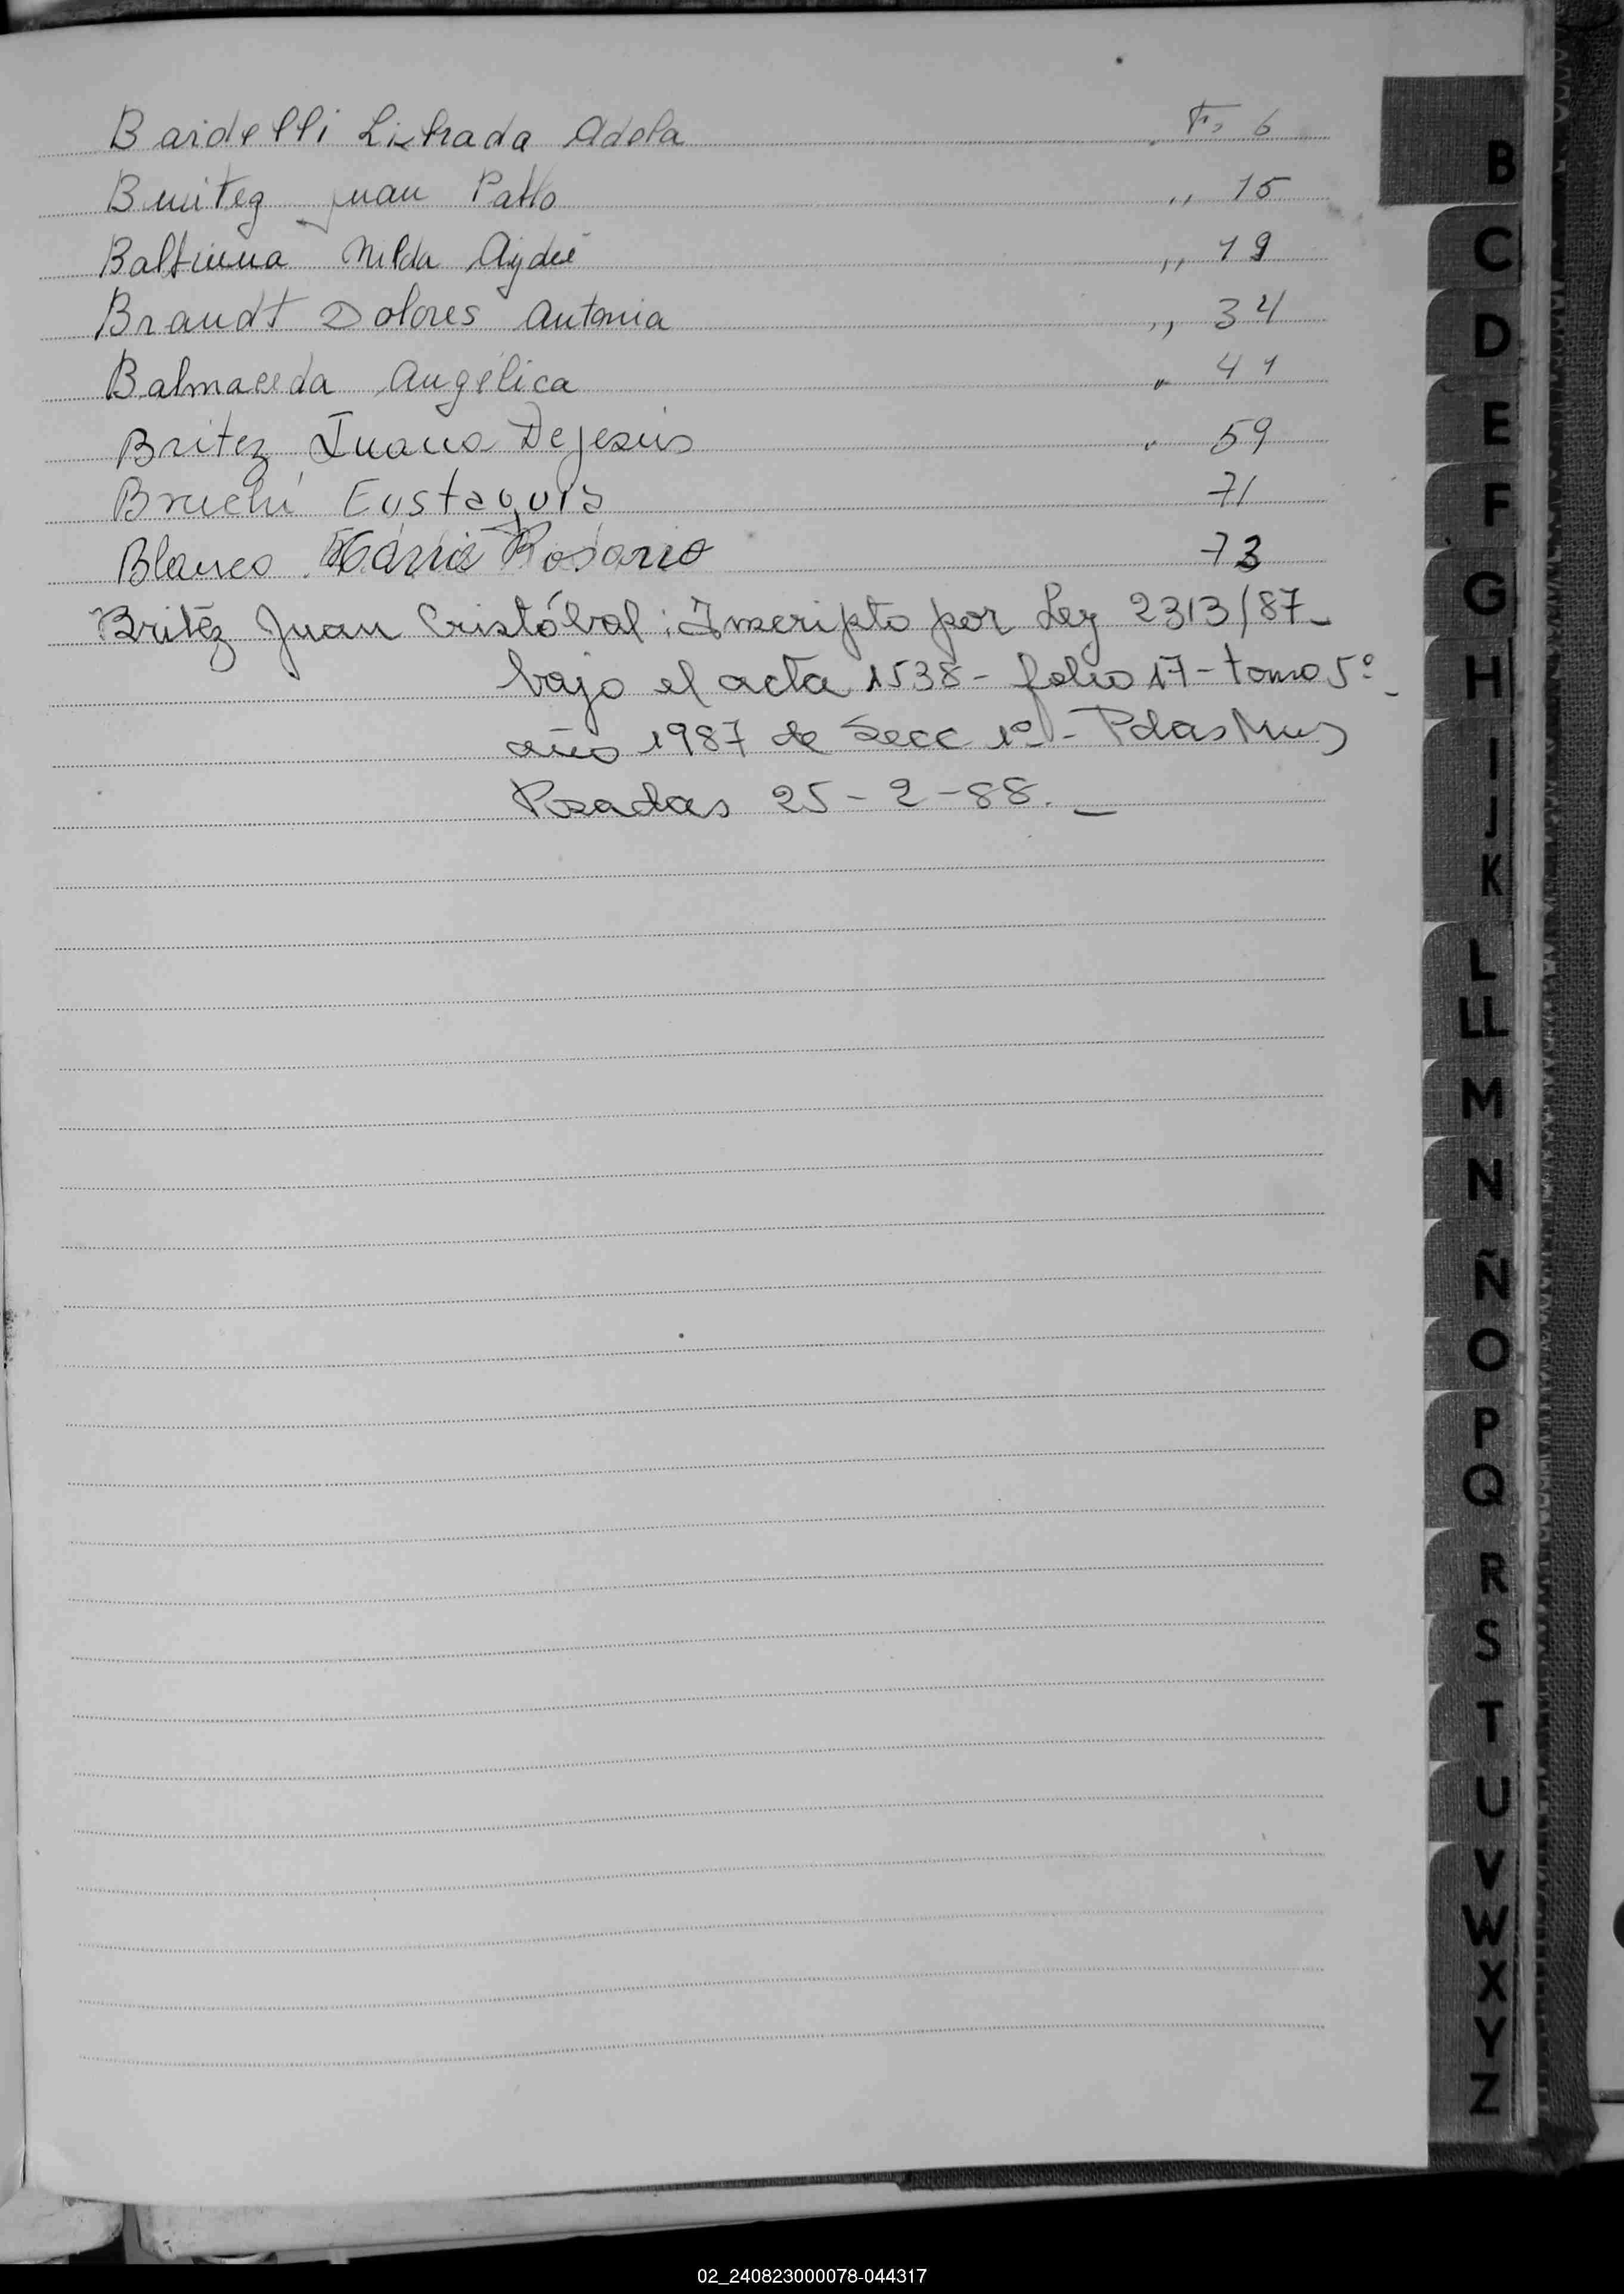 Bardelli Librada Adela F° 6
Benitez Juan Pablo ,, 15
Nilda Aydeé ,, 19
Brandt Dolores Antonia ,, 34
Balmaceda Angélica " 41
Britez Juana De Jesús " 59
Bruchi Eustaquia 71
Blanco María Rosario 73
Britéz Juan Cristóbal: Inscripto por Ley 2313/87-
bajo el acta 1538- folio 17- tomo 5°-
año 1987 de Secc 1ª- Pdas Mnes
Posadas 25-2-88.-
B
C
D
E
F
G
H
I
J
K
L
LL
M
N
Ñ
O
P
Q
R
S
T
U
V
W
X
Y
Z
02_240823000078-044317